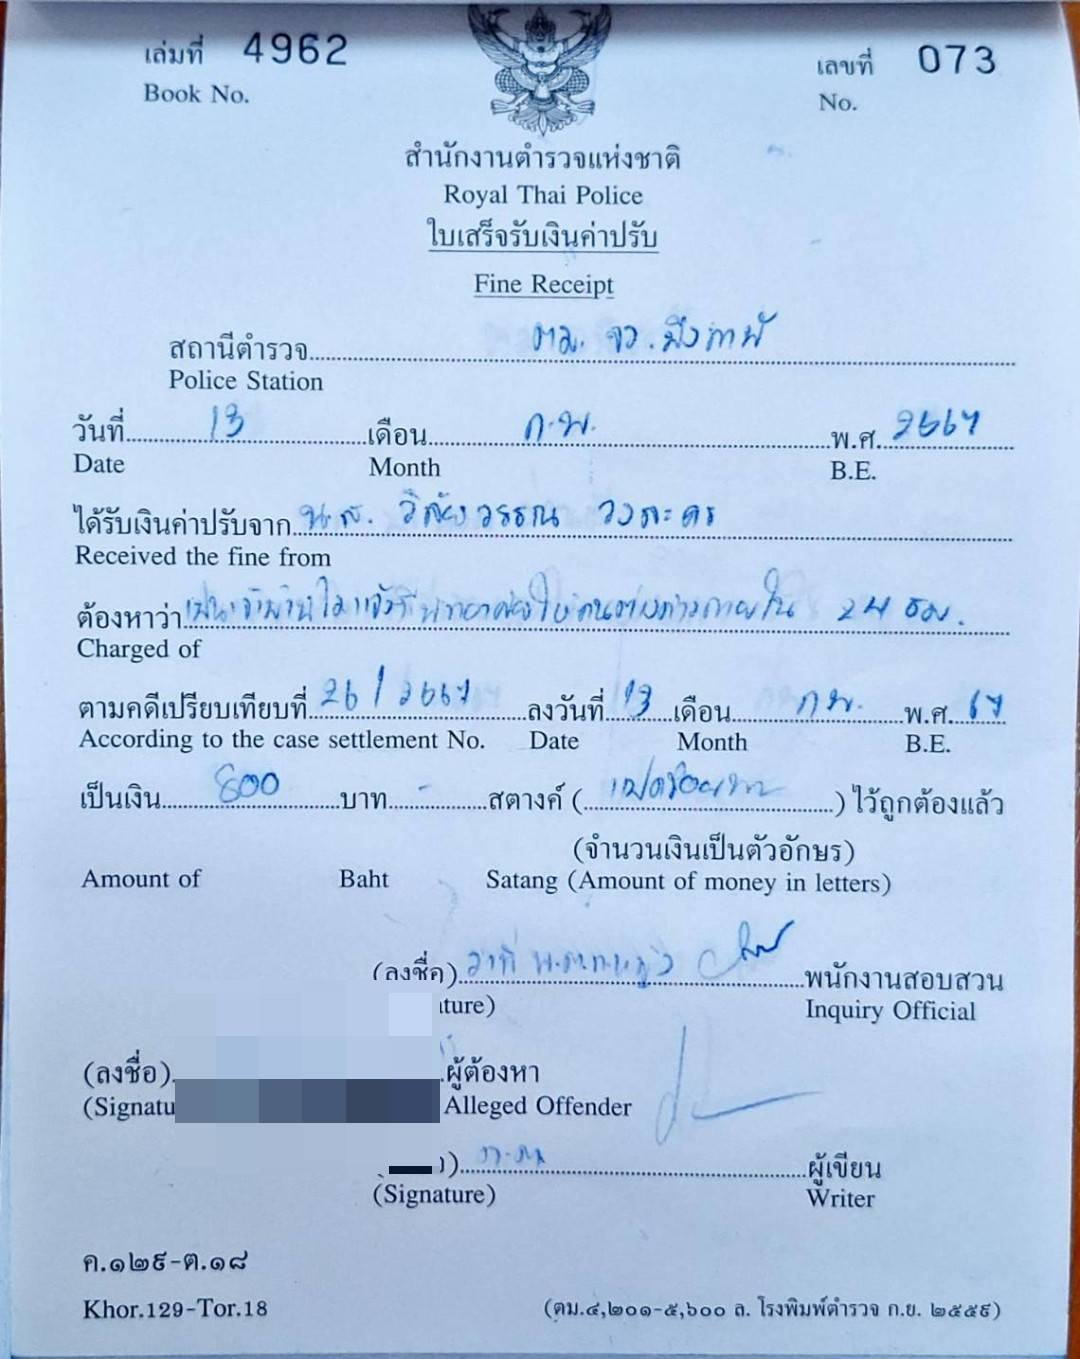 เล่มที่ 4962 เลขที่ 073
Book No. No.
สำนักงานตำรวจแห่งชาติ
Royal Thai Police
ใบเสร็จรับเงินค่าปรับ
Fine Receipt
สถานีตำรวจ ตม. จว. บึงกาฬ
Police Station
วันที่ 13 เดือน ก.พ. พ.ศ. 2567
Date Month B.E.
ได้รับเงินค่าปรับจาก น.ส.
Received the fine from
ต้องหาว่า เป็นเจ้าบ้านไม่แจ้งที่พักอาศัยให้คนต่างด้าวภายใน 24 ชม.
Charged of
ตามคดีเปรียบเทียบที่ 26/2567 ลงวันที่ 13 เดือน ก.พ. พ.ศ. 67
According to the case settlement No. Date Month B.E.
เป็นเงิน 800 บาท - สตางค์ (แปดร้อยบาท) ไว้ถูกต้องแล้ว
(จำนวนเงินเป็นตัวอักษร)
Amount of Baht Satang (Amount of money in letters)
(ลงชื่อ) ว่าที่ พ.ต.ท.หญิง พนักงานสอบสวน
ture) Inquiry Official
(ลงชื่อ) ผู้ต้องหา
(Signatu Alleged Offender
) ผู้เขียน
(Signature) Writer
ค.๑๒๙-ต.๑๘
Khor.129-Tor.18 (ตม.๔,๒๐๑-๕,๖๐๐ ล. โรงพิมพ์ตำรวจ ก.ย. ๒๕๕๙)